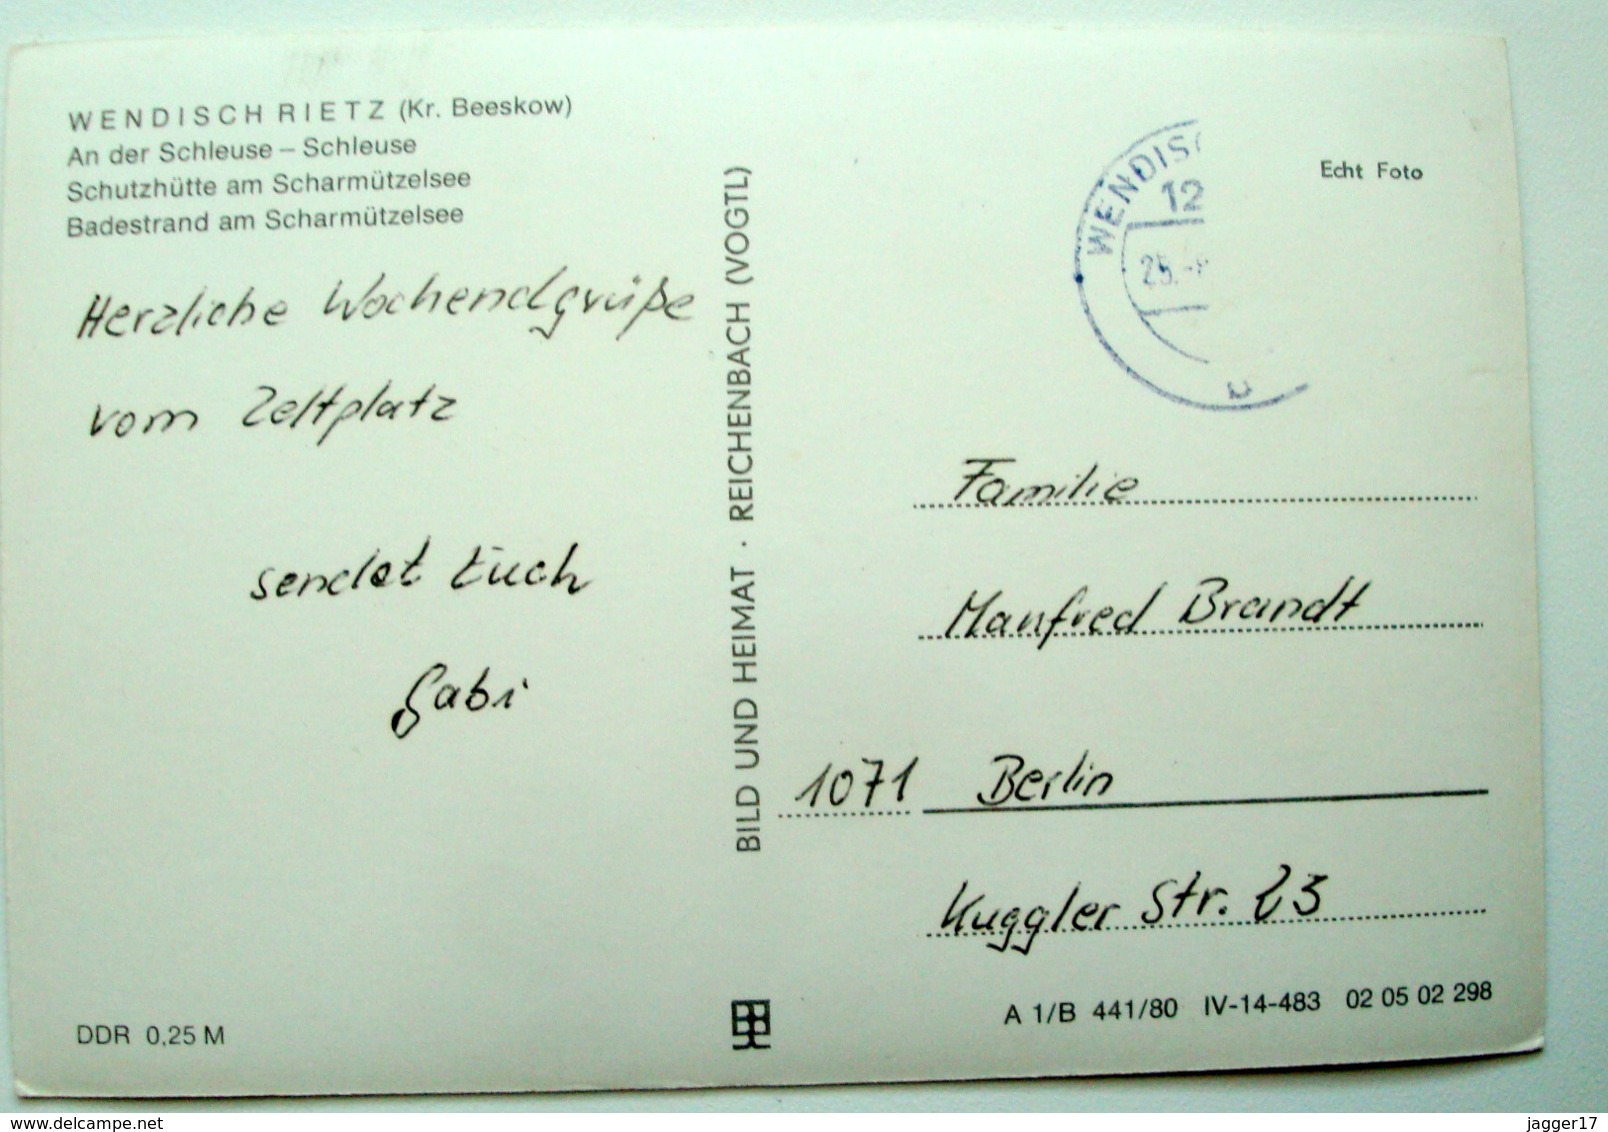 WENDISCH RIETZ (Kr. Beeskow)
An der Schleuse – Schleuse
Schutzhütte am Scharmützelsee
Badestrand am Scharmützelsee
Herzliche Wochendgrüße
vom Zeltplatz
sendet Euch
Gabi
DDR 0,25 M
BILD UND HEIMAT · REICHENBACH (VOGTL)
WENDISC
12
25.
Echt Foto
Familie
Manfred Brandt
1071 Berlin
Kuggler Str. 23
A 1/B 441/80 IV-14-483 02 05 02 298
delcampe.net
jagger17